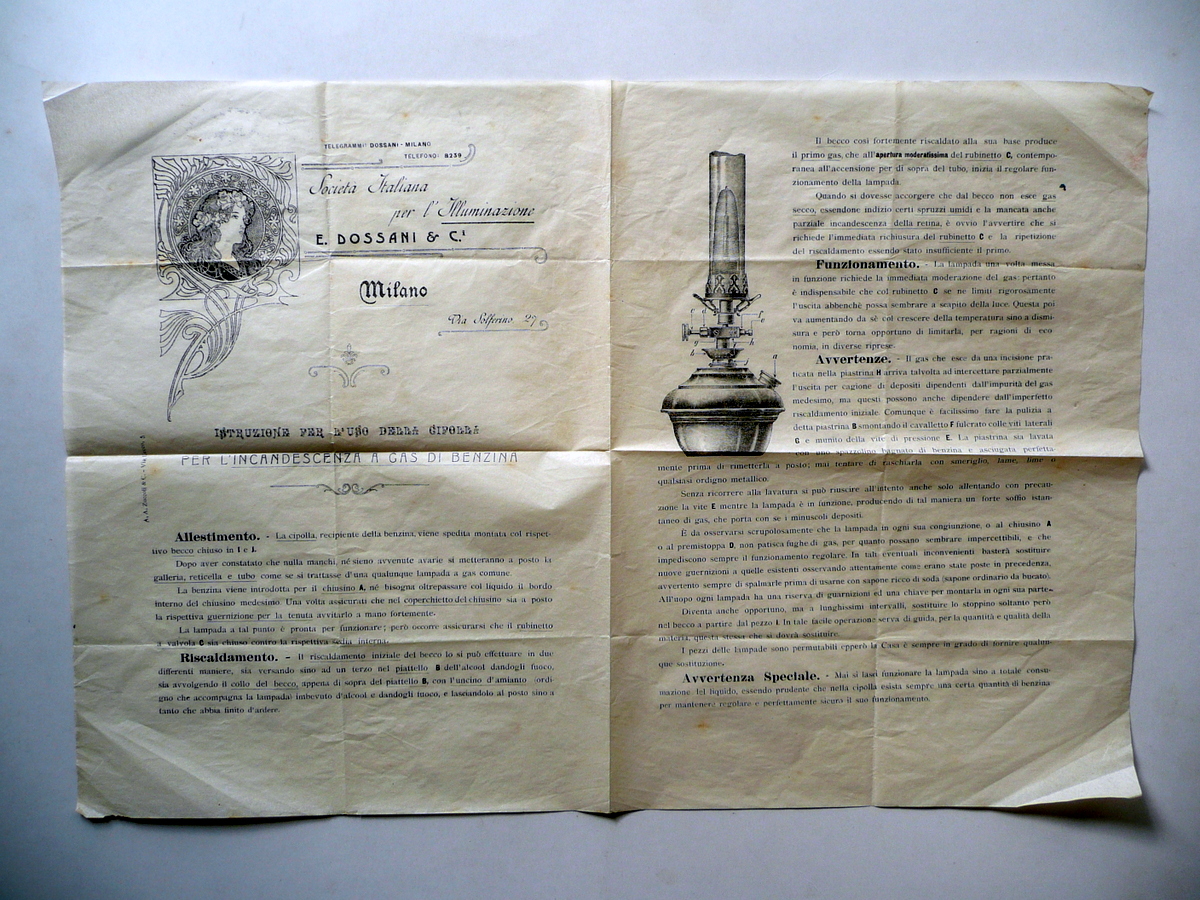 TELEGRAMMI DOSSANI - MILANO
TELEFONO: 8239
Società Italiana
per l'Illuminazione
E. DOSSANI & C.i
Milano
Via Solferino 27
ISTRUZIONE PER L'USO DELLA CIPOLLA
PER L'INCANDESCENZA A GAS DI BENZINA
Allestimento. - La cipolla, recipiente della benzina, viene spedita montata col rispet-
tivo becco chiuso in I e J.
Dopo aver constatato che nulla manchi, né sieno avvenute avarie si metteranno a posto la
galleria, reticella e tubo come se si trattasse d'una qualunque lampada a gas comune.
La benzina viene introdotta per il chiusino A, né bisogna oltrepassare col liquido il bordo
interno del chiusino medesimo. Una volta assicurati che nel coperchietto del chiusino sia a posto
la rispettiva guernizione per la tenuta avvitarlo a mano fortemente.
La lampada a tal punto è pronta per funzionare; però occorre assicurarsi che il rubinetto
a valvola C sia chiuso contro la rispettiva sedia interna.
Riscaldamento. - Il riscaldamento iniziale del becco lo si può effettuare in due
differenti maniere, sia versando sino ad un terzo nel piattello B dell'alcool dandogli fuoco,
sia avvolgendo il collo del becco, appena di sopra del piattello B, con l'uncino d'amianto (ordi
gno che accompagna la lampada) imbevuto d'alcool e dandogli fuoco, e lasciandolo al posto sino a
tanto che abbia finito d'ardere.
Il becco così fortemente riscaldato alla sua base produce
il primo gas, che all'apertura moderatissima del rubinetto C, contempo-
ranea all'accensione per di sopra del tubo, inizia il regolare fun-
zionamento della lampada.
Quando si dovesse accorgere che dal becco non esce gas
secco, essendone indizio certi spruzzi umidi e la mancata anche
parziale incandescenza della retina, è ovvio l'avvertire che si
richiede l'immediata richiusura del rubinetto C e la ripetizione
del riscaldamento essendo stato insufficiente il primo.
Funzionamento. - La lampada una volta messa
in funzione richiede la immediata moderazione del gas: pertanto
è indispensabile che col rubinetto C se ne limiti rigorosamente
l'uscita abbenchè possa sembrare a scapito della luce. Questa poi
va aumentando da sè col crescere della temperatura sino a dismi-
sura e però torna opportuno di limitarla, per ragioni di eco
nomia, in diverse riprese.
Avvertenze. - Il gas che esce da una incisione pra-
ticata nella piastrina H arriva talvolta ad intercettare parzialmente
l'uscita per cagione di depositi dipendenti dall'impurità del gas
medesimo, ma questi possono anche dipendere dall'imperfetto
riscaldamento iniziale. Comunque è facilissimo fare la pulizia a
detta piastrina B smontando il cavalletto F fulcrato colle viti laterali
G e munito della vite di pressione E. La piastrina sia lavata
con uno spazzolino bagnato di benzina e asciugata perfetta-
mente prima di rimetterla a posto; mai tentare di raschiarla con smeriglio, lame, lime o
qualsiasi ordigno metallico.
Senza ricorrere alla lavatura si può riuscire all'intento anche solo allentando con precau-
zione la vite E mentre la lampada è in funzione, producendo di tal maniera un forte soffio istan-
taneo di gas, che porta con se i minuscoli depositi.
È da osservarsi scrupolosamente che la lampada in ogni sua congiunzione, o al chiusino A
o al premistoppa D, non patisca fughe di gas, per quanto possano sembrare impercettibili, e che
impediscono sempre il funzionamento regolare. In tali eventuali inconvenienti basterà sostituire
nuove guernizioni a quelle esistenti osservando attentamente come erano state poste in precedenza,
avvertento sempre di spalmarle prima di usarne con sapone ricco di soda (sapone ordinario da bucato).
All'uopo ogni lampada ha una riserva di guarnizioni ed una chiave per montarla in ogni sua parte-
Diventa anche opportuno, ma a lunghissimi intervalli, sostituire lo stoppino soltanto però
nel becco a partire dal pezzo I. In tale facile operazione serva di guida, per la quantità e qualità della
materia, questa stessa che si dovrà sostituire.
I pezzi delle lampade sono permutabili epperò la Casa è sempre in grado di fornire qualun-
que sostituzione.
Avvertenza Speciale. - Mai si lasci funzionare la lampada sino a totale consu-
mazione del liquido, essendo prudente che nella cipolla esista sempre una certa quantità di benzina
per mantenere regolare e perfettamente sicura il suo funzionamento.